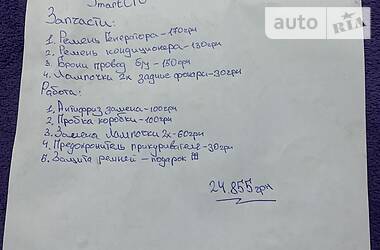 Smart
auto RIA
Запчасти:
1. Ремень Генератора-170грн
2. Ремень кондиционера-130грн
3. Брони провод б/у-150грн
4. Лампочки 2х задние фонари-30грн
Работа:
1. Антифриз замена-100грн
2. Пробка коробки-100грн
3. Замена Лампочки 2х-60грн
4. Предохронитель прикуривателе-30грн
5. Защита ремней - подарок !!!
24.855грн